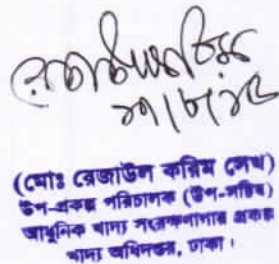 (মোঃ রেজাউল করিম সেখ)
উপ-প্রকল্প পরিচালক (উপ-সচিব)
আধুনিক খাদ্য সংরক্ষণাগার প্রকল্প
খাদ্য অধিদপ্তর, ঢাকা।